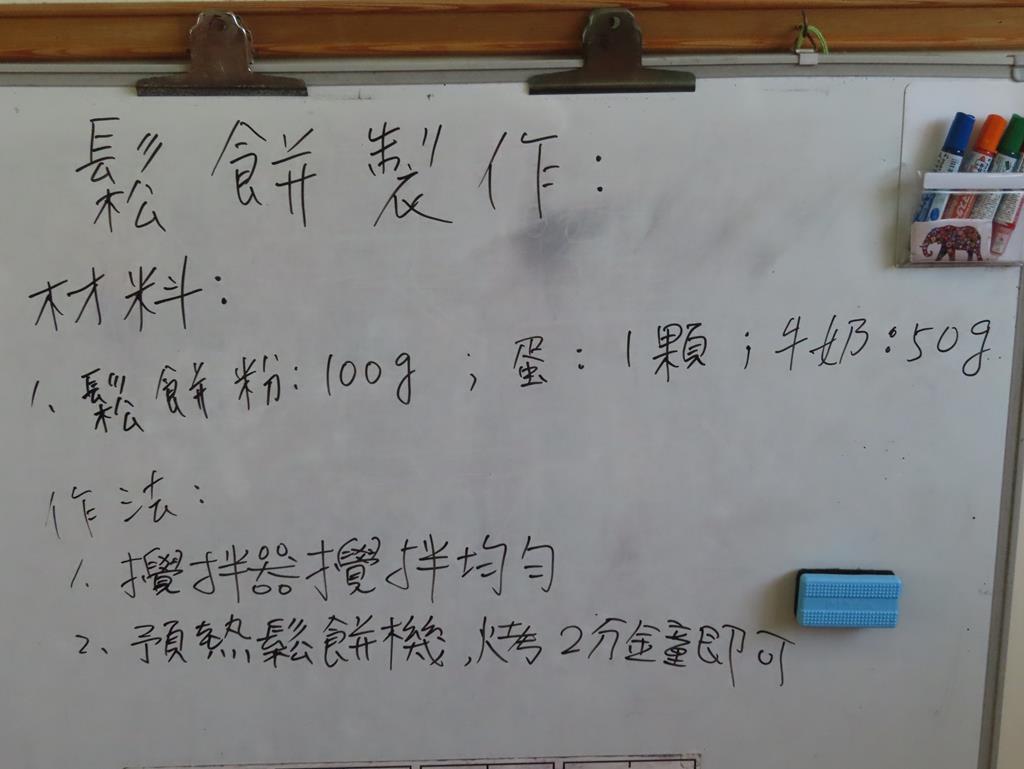 鬆餅製作:
材料:
1、鬆餅粉:100g ;蛋:1顆;牛奶:50g
作法:
1、攪拌器攪拌均勻
2、預熱鬆餅機,烤2分鐘即可